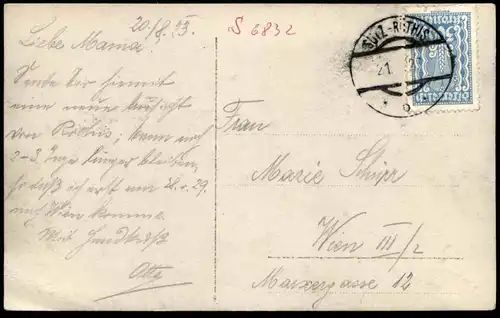 20./8. 23.
S 6832
Liebe Mama!
Sende Dir hiemit
eine neue Ansicht
von Röthis; kann noch
2-3 Tage länger bleiben,
so daß ich erst am 28. o. 29.
nach Wien komme.
Mit Handkuß
Otto
SULZ-RÖTHIS
21.
Frau
Marie
Wien III/2
Marxergasse 12